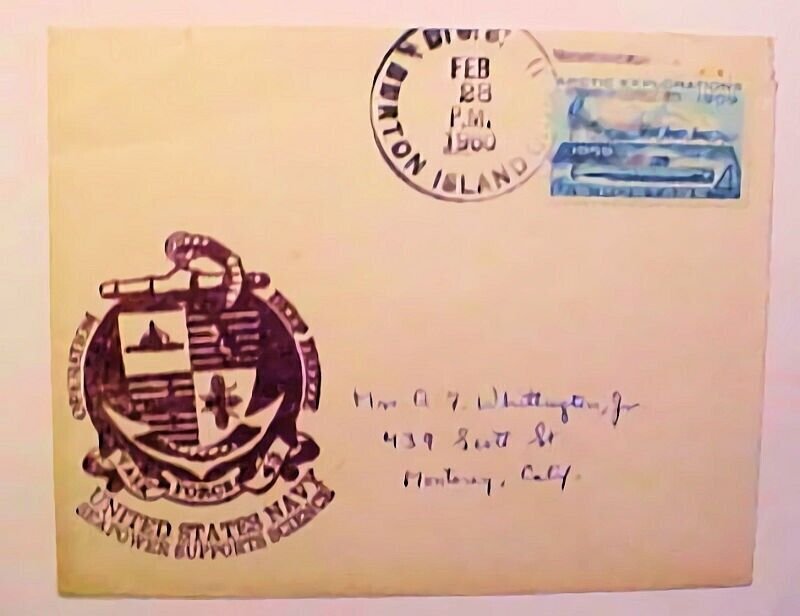 U.S.S.
BURTON ISLAND
FEB
28
P.M.
1960
ARCTIC EXPLORATIONS
1959
1958
4
OPERATION DEEP FREEZE
TASK FORCE 43
UNITED STATES NAVY
SEAPOWER SUPPORTS SCIENCE
Mrs A. F. Whittington, Jr
439 Scott St
Monterey, Calif.